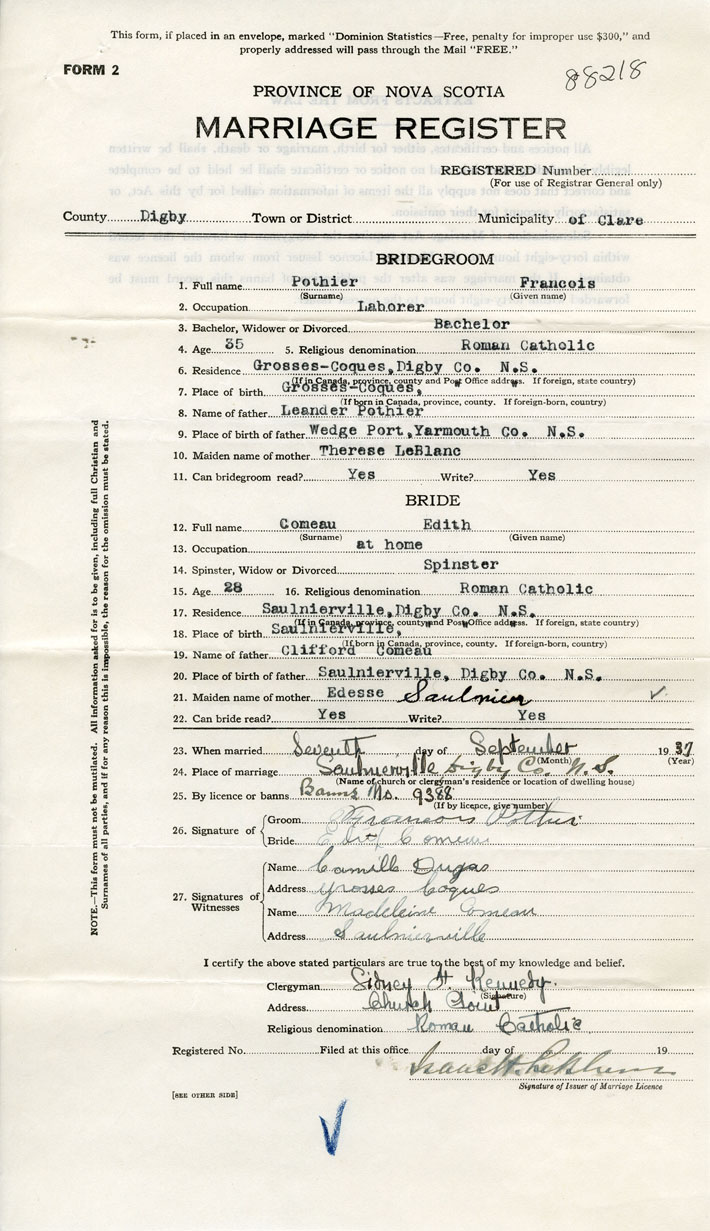 This form, if placed in an envelope, marked "Dominion Statistics—Free, penalty for improper use $300," and
properly addressed will pass through the Mail "FREE."
FORM 2
88218
PROVINCE OF NOVA SCOTIA
MARRIAGE REGISTER
REGISTERED Number
(For use of Registrar General only)
County Digby Town or District Municipality of Clare
BRIDEGROOM
1. Full name Pothier Francois
(Surname) (Given name)
2. Occupation Laborer
3. Bachelor, Widower or Divorced Bachelor
4. Age 35 5. Religious denomination Roman Catholic
6. Residence Grosses-Coques, Digby Co. N.S.
(If in Canada, province, county and Post Office address. If foreign, state country)
7. Place of birth Grosses-Coques,
(If born in Canada, province, county. If foreign-born, country)
8. Name of father Leander Pothier
9. Place of birth of father Wedge Port, Yarmouth Co. N.S.
10. Maiden name of mother Therese LeBlanc
11. Can bridegroom read? Yes Write? Yes
BRIDE
12. Full name Comeau Edith
(Surname) (Given name)
13. Occupation at home
14. Spinster, Widow or Divorced Spinster
15. Age 28 16. Religious denomination Roman Catholic
17. Residence Saulnierville, Digby Co. N.S.
(If in Canada, province, county and Post Office address. If foreign, state country)
18. Place of birth Saulnierville,
(If born in Canada, province, county. If foreign-born, country)
19. Name of father Clifford Comeau
20. Place of birth of father Saulnierville, Digby Co. N.S.
21. Maiden name of mother Edesse Saulnier
22. Can bride read? Yes Write? Yes
23. When married Seventh day of September 1937
(Month) (Year)
24. Place of marriage Saulnierville Digby Co. N.S.
(Name of church or clergyman's residence or location of dwelling house)
25. By licence or banns Banns No. 9388
(If by licence, give number)
26. Signature of Groom Francois Pothier
Bride Edith Comeau
27. Signatures of Witnesses Name Camille Dugas
Address Grosses Coques
Name Madeleine Comeau
Address Saulnierville
I certify the above stated particulars are true to the best of my knowledge and belief.
Clergyman Sidney A. Kennedy.
(Signature)
Address Church Point
Religious denomination Roman Catholic
Registered No. Filed at this office day of 19
Isaac
Signature of Issuer of Marriage Licence
[SEE OTHER SIDE]
NOTE.—This form must not be mutilated. All information asked for is to be given, including full Christian and
Surnames of all parties, and if for any reason this is impossible, the reason for the omission must be stated.